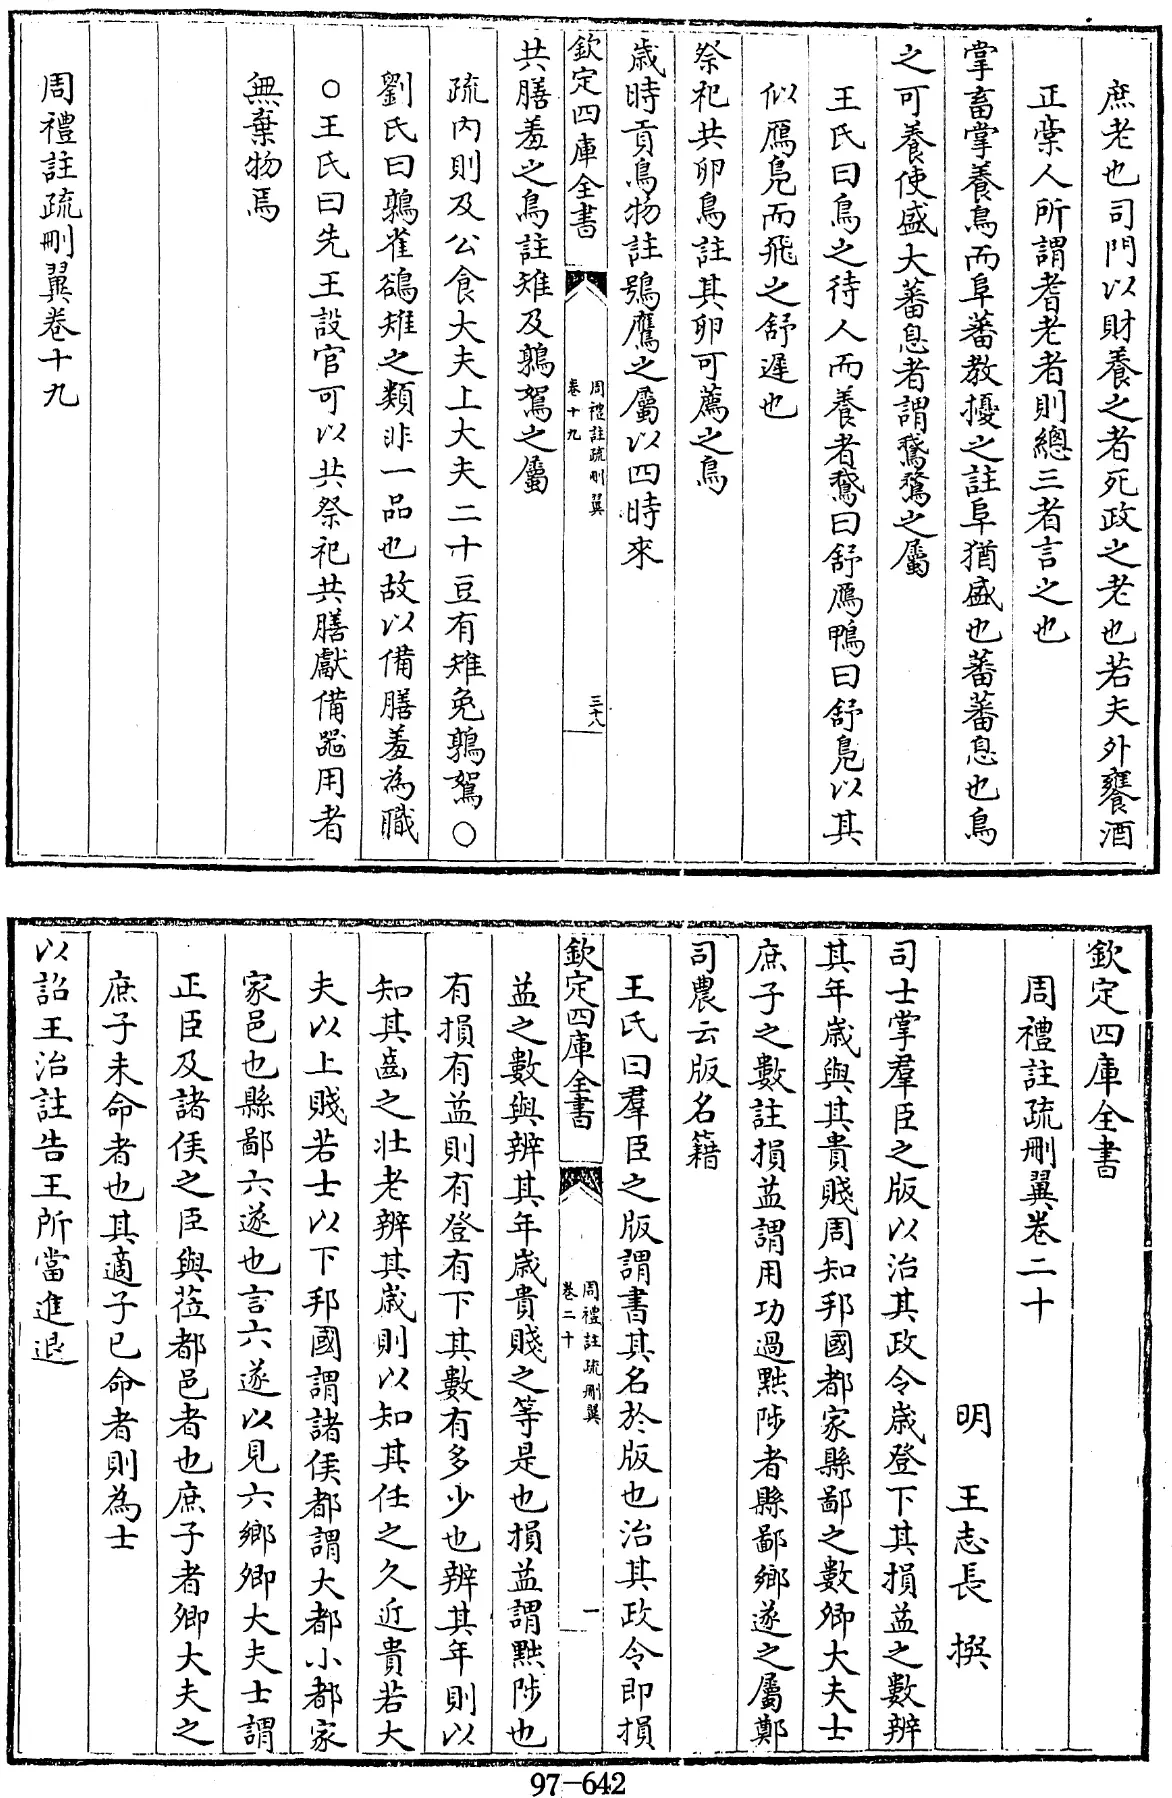 庶老也司門以財養之者死政之老也若夫外饔酒
正槀人所謂耆老者則總三者言之也
掌畜掌養鳥而阜蕃教擾之註阜猶盛也蕃蕃息也鳥
之可養使盛大蕃息者謂鵞鶩之屬
王氏曰鳥之待人而養者鵞曰舒鴈鴨曰舒鳬以其
似鴈鳬而飛之舒遲也
祭祀共卵鳥註其卵可薦之鳥
歲時貢鳥物註鴞鷹之屬以四時來
欽定四庫全書
周禮註疏刪翼
卷十九
三十八
共膳羞之鳥註雉及鶉鴽之屬
疏內則及公食大夫上大夫二十豆有雉兔鶉鴽○
劉氏曰鶉雀鷂雉之類非一品也故以備膳羞為職
○王氏曰先王設官可以共祭祀共膳獻備器用者
無棄物焉
周禮註疏刪翼卷十九
欽定四庫全書
周禮註疏刪翼卷二十
明 王志長 撰
司士掌羣臣之版以治其政令歲登下其損益之數辨
其年歲與其貴賤周知邦國都家縣鄙之數卿大夫士
庶子之數註損益謂用功過黜陟者縣鄙鄉遂之屬鄭
司農云版名籍
王氏曰羣臣之版謂書其名於版也治其政令即損
欽定四庫全書
周禮註疏刪翼
卷二十
一
益之數與辨其年歲貴賤之等是也損益謂黜陟也
有損有益則有登有下其數有多少也辨其年則以
知其齒之壯老辨其歲則以知其任之久近貴若大
夫以上賤若士以下邦國謂諸侯都謂大都小都家
家邑也縣鄙六遂也言六遂以見六鄉卿大夫士謂
正臣及諸侯之臣與莅都邑者也庶子者卿大夫之
庶子未命者也其適子已命者則為士
以詔王治註告王所當進退
97-642